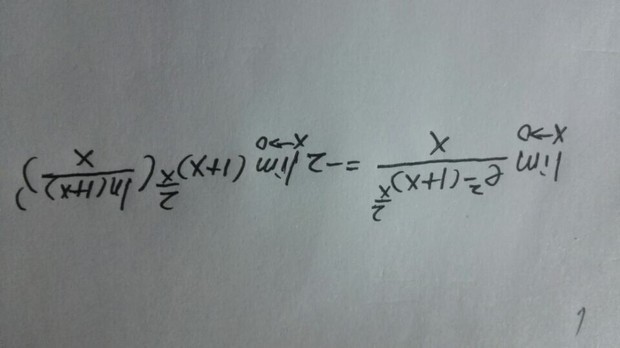 $\lim_{x \to 0} \frac{e^2-(1+x)^{\frac{2}{x}}}{x} = -2 \lim_{x \to 0} (1+x)^{\frac{2}{x}} \left(\frac{\ln(1+x)}{x}\right)'$